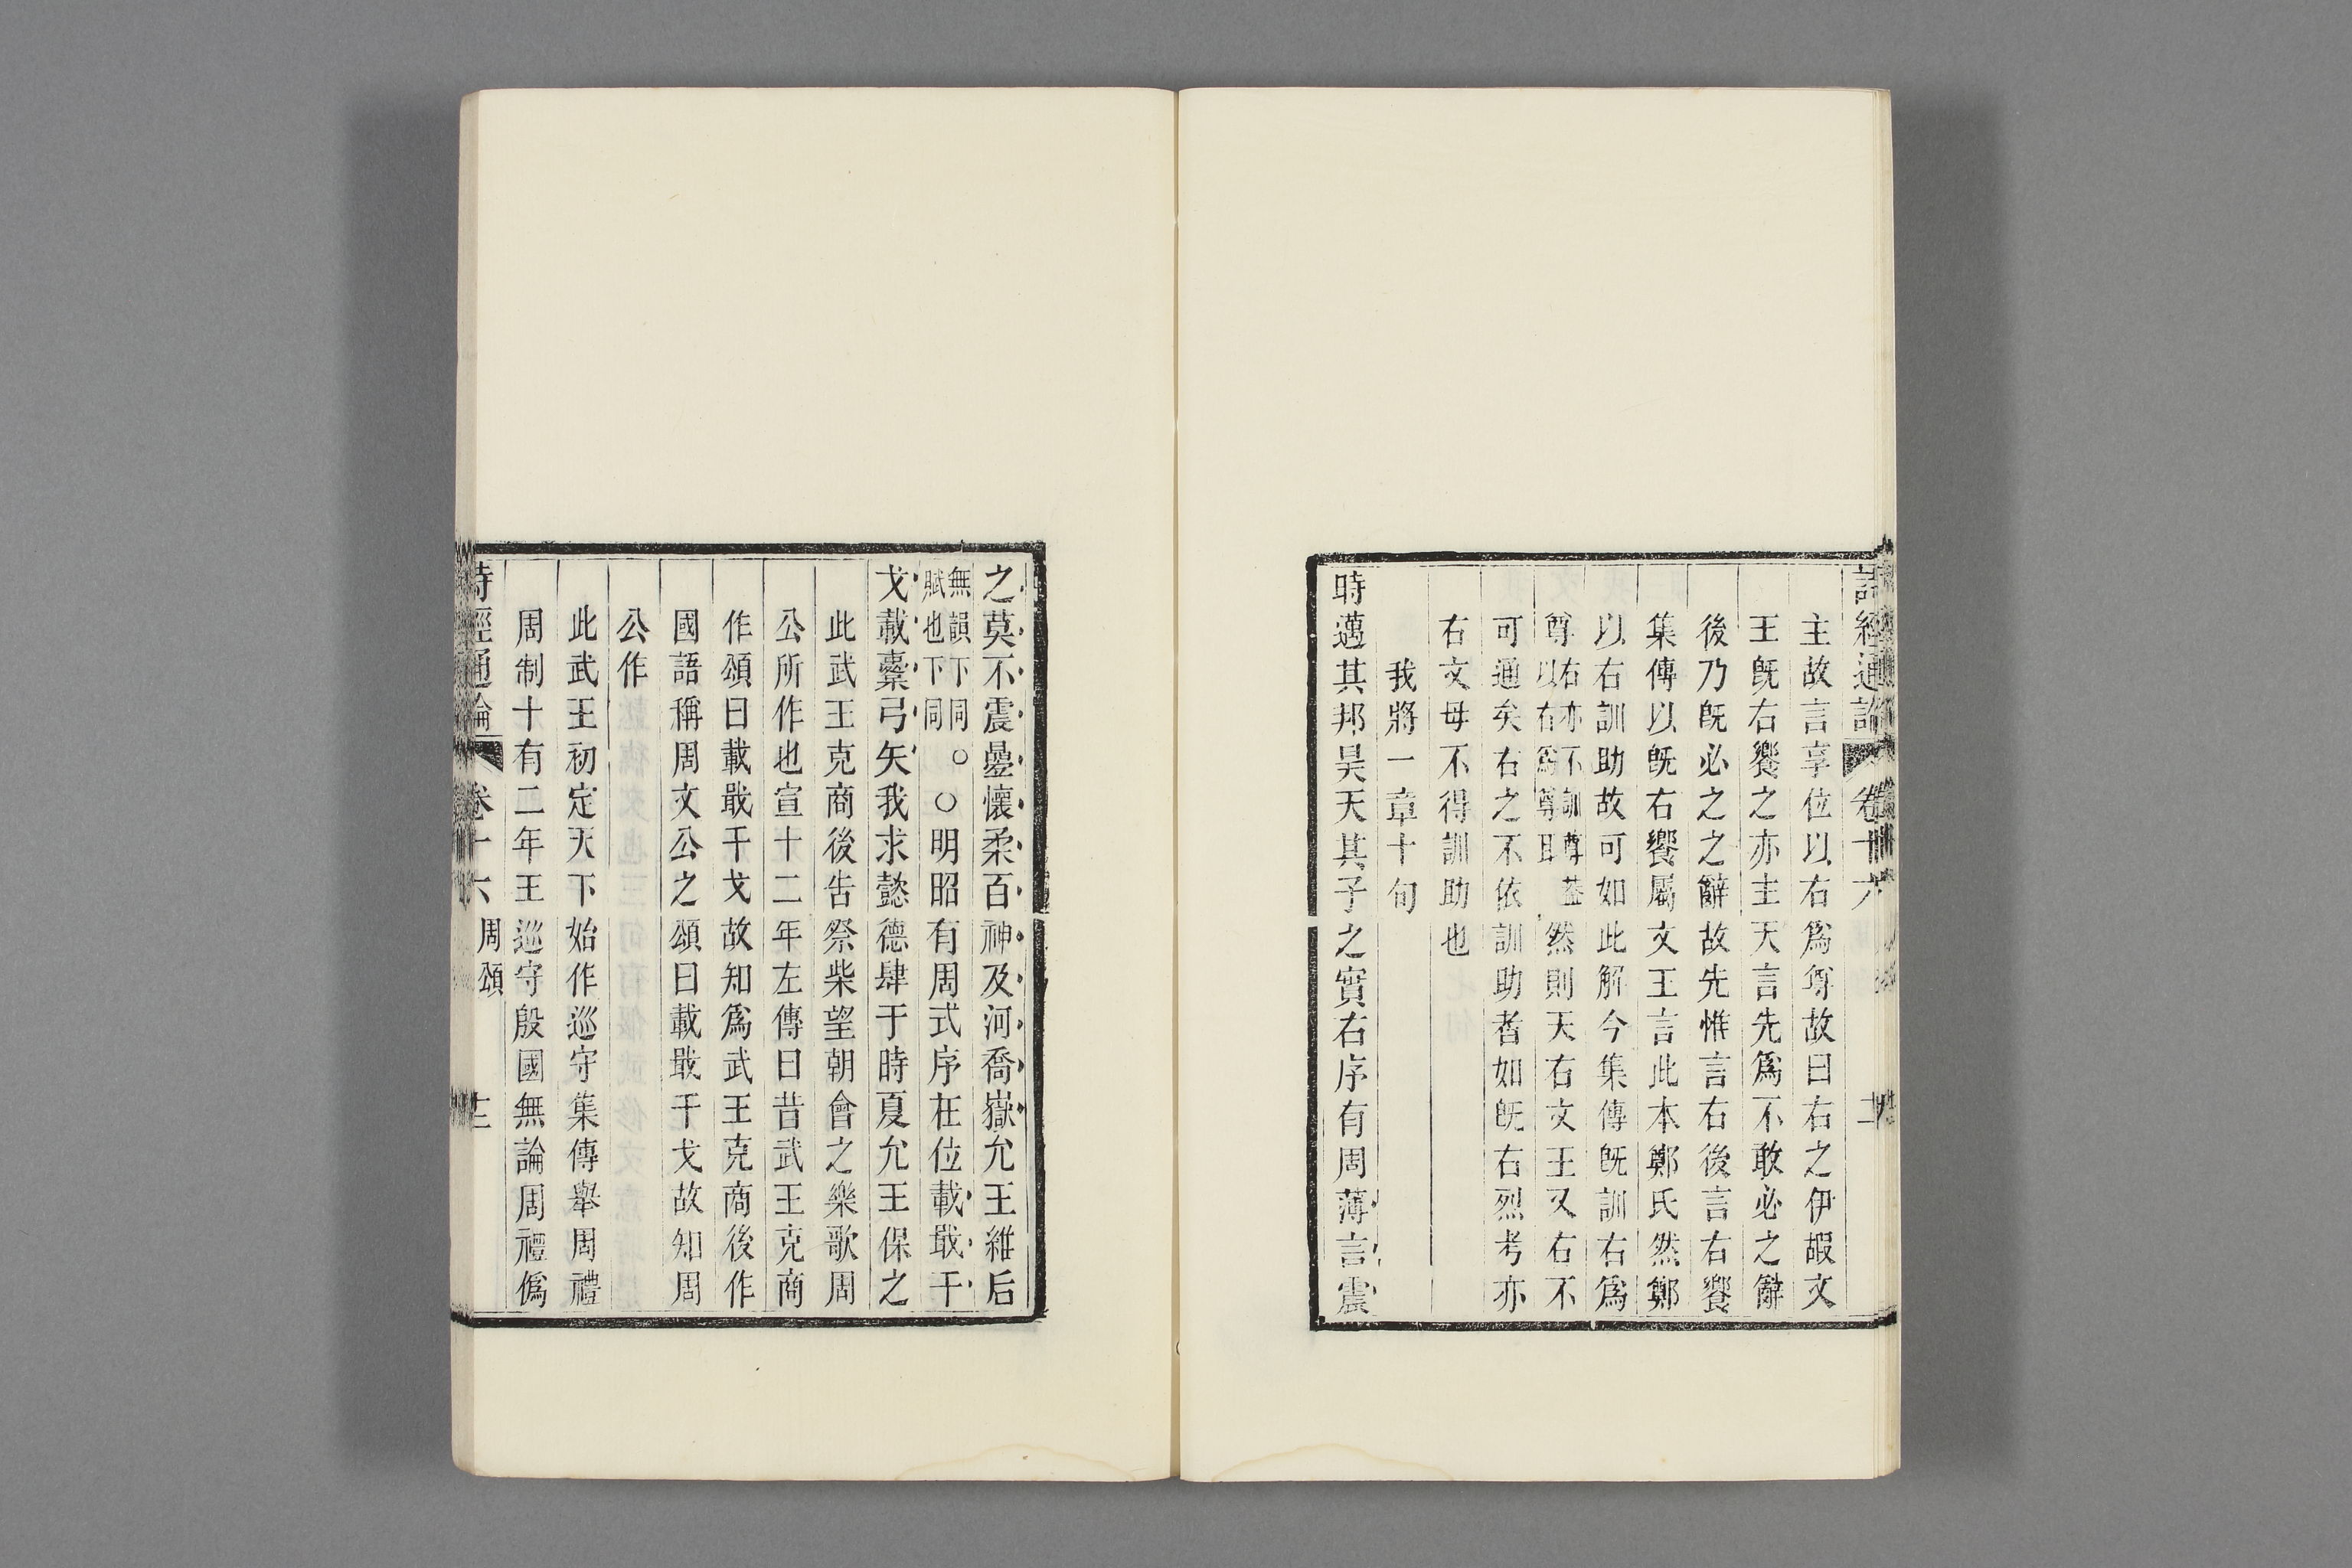 詩經通論 卷十六
主故言享位以右爲尊故曰右之伊嘏文
王旣右饗之亦主天言先爲不敢必之辭
後乃旣必之之辭故先惟言右後言右饗
集傳以旣右饗屬文王言此本鄭氏然鄭
以右訓助故可如此解今集傳旣訓右爲
尊右亦不訓尊葢以右爲尊耳然則天右文王又右不
可通矣右之不依訓助者如旣右烈考亦
右文母不得訓助也
我將一章十句
時邁其邦昊天其子之實右序有周薄言震
之莫不震曡懷柔百神及河喬嶽允王維后
無韻下同○賦也下同○明昭有周式序在位載戢干
戈載櫜弓矢我求懿德肆于時夏允王保之
此武王克商後告祭柴望朝會之樂歌周
公所作也宣十二年左傳曰昔武王克商
作頌曰載戢干戈故知爲武王克商後作
國語稱周文公之頌曰載戢干戈故知周
公作
此武王初定天下始作巡守集傳舉周禮
周制十有二年王巡守殷國無論周禮僞
詩經通論 卷十六 周頌 十二